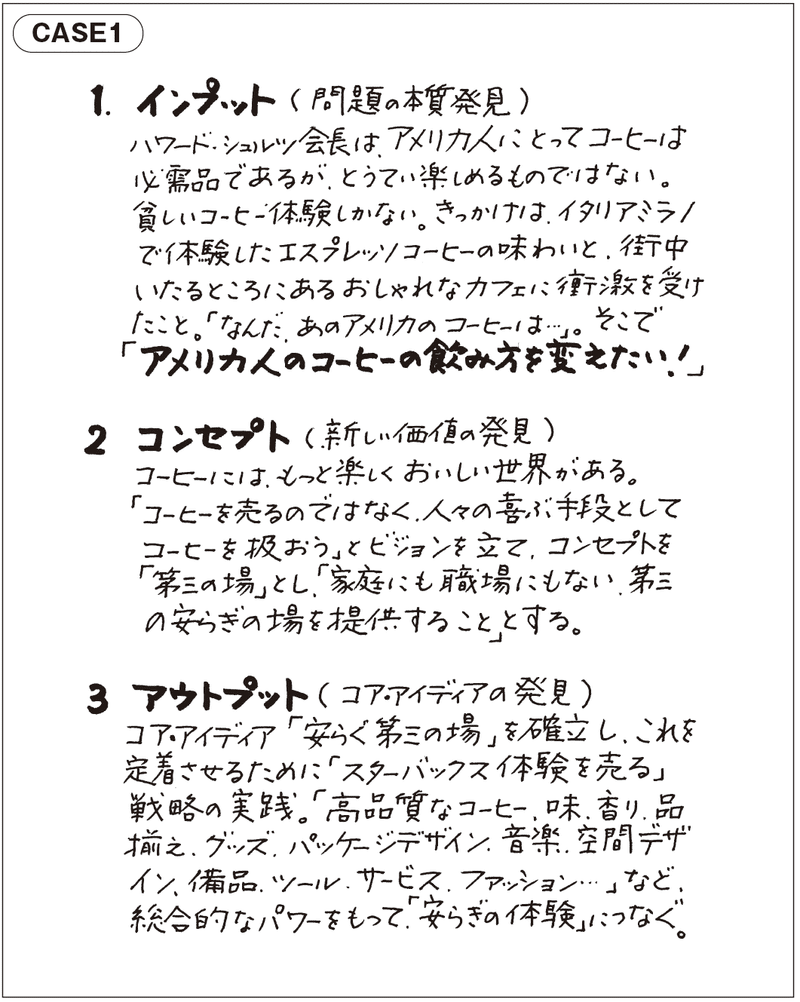 CASE1
1. インプット（問題の本質発見）
ハワード・シュルツ会長は、アメリカ人にとってコーヒーは
必需品であるが、とうてい楽しめるものではない。
貧しいコーヒー体験しかない。きっかけは、イタリアミラノ
で体験したエスプレッソコーヒーの味わいと、街中
いたるところにあるおしゃれなカフェに衝激を受け
たこと。「なんだ、あのアメリカのコーヒーは…」。そこで
「アメリカ人のコーヒーの飲み方を変えたい！」
2 コンセプト（新しい価値の発見）
コーヒーには、もっと楽しくおいしい世界がある。
「コーヒーを売るのではなく、人々の喜ぶ手段として
コーヒーを扱おう」とビジョンを立て、コンセプトを
「第三の場」とし、「家庭にも職場にもない、第三
の安らぎの場を提供すること」とする。
3 アウトプット（コア・アイディアの発見）
コア・アイディア「安らぐ第三の場」を確立し、これを
定着させるために「スターバックス体験を売る」
戦略の実践。「高品質なコーヒー、味、香り、品
揃え、グッズ、パッケージデザイン、音楽、空間デザ
イン、備品、ツール、サービス、ファッション…」など、
総合的なパワーをもって、「安らぎの体験」につなぐ。